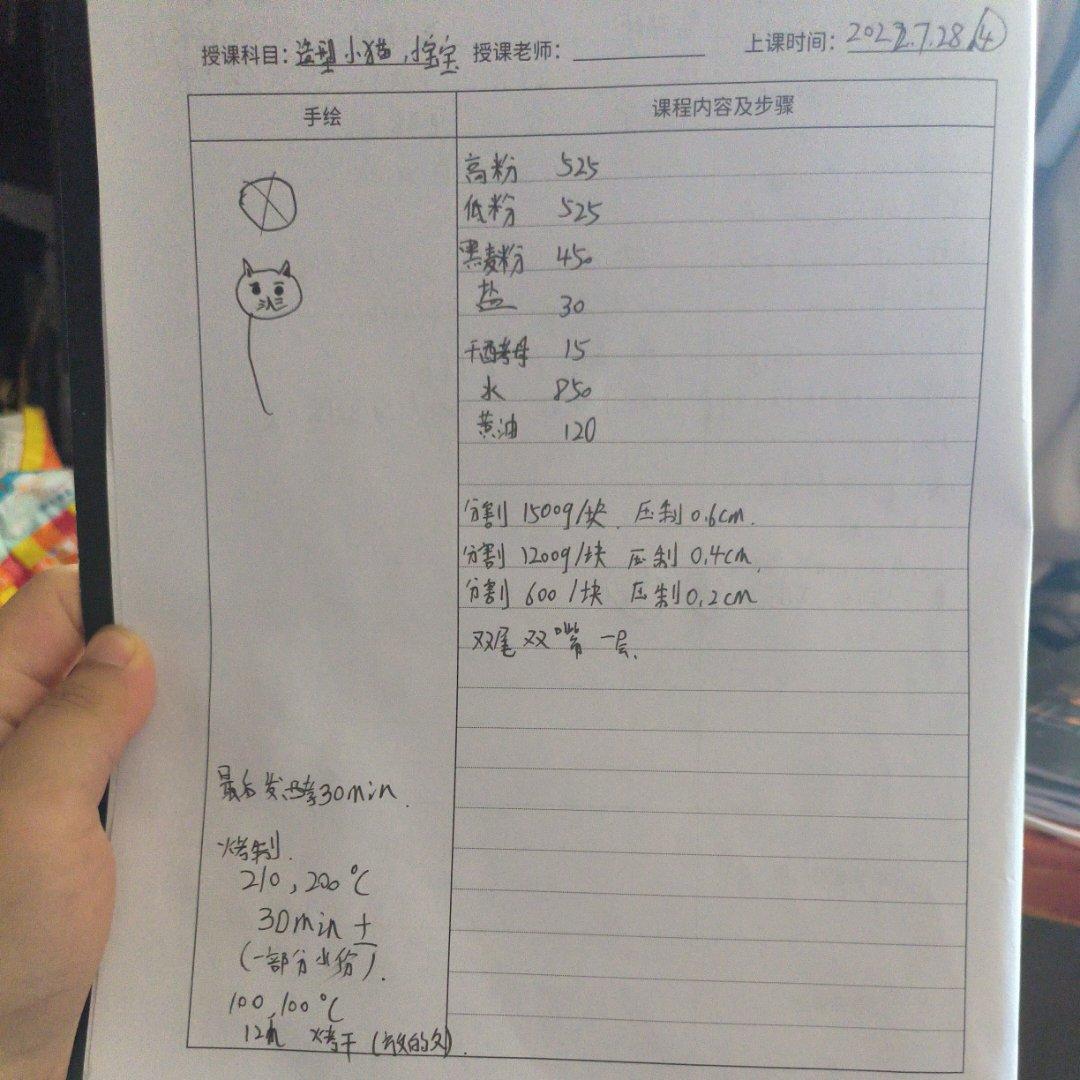 授课科目：造型小猫，小宝宝 授课老师： 上课时间：2022.7.28 ④
手绘 课程内容及步骤
高粉 525
低粉 525
黑麦粉 450
盐 30
干酵母 15
水 850
黄油 120
分割 1500g/块. 压制 0.6cm.
分割 1200g/块 压制 0.4cm.
分割 600/块 压制 0.2cm
双尾双嘴一层.
最后发酵30min.
烤制.
210,200℃
30min+
(一部分水份).
100,100℃
12h 烤干(放的久).